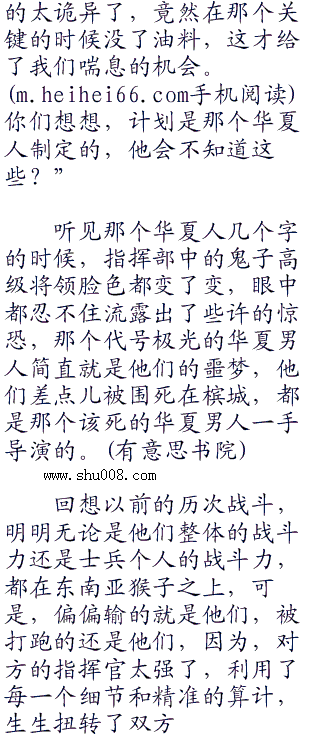 的太诡异了，竟然在那个关
键的时候没了油料，这才给
了我们喘息的机会。
(m.heihei66.com手机阅读)
你们想想，计划是那个华夏
人制定的，他会不知道这
些？”
听见那个华夏人几个字
的时候，指挥部中的鬼子高
级将领脸色都变了变，眼中
都忍不住流露出了些许的惊
恐，那个代号极光的华夏男
人简直就是他们的噩梦，他
们差点儿被围死在槟城，都
是那个该死的华夏男人一手
导演的。(有意思书院)
www.shu008.com
回想以前的历次战斗，
明明无论是他们整体的战斗
力还是士兵个人的战斗力，
都在东南亚猴子之上，可
是，偏偏输的就是他们，被
打跑的还是他们，因为，对
方的指挥官太强了，利用了
每一个细节和精准的算计，
生生扭转了双方